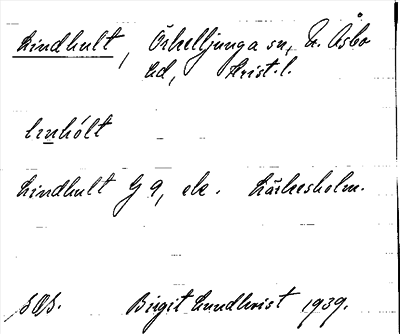 Lindhult, Örkelljunga sn, N. Åsbo
hd, Krist. l.
linhólt
Lindhult G 9, ek. Lärkesholm.
SOS. Birgit Lundkvist 1939.